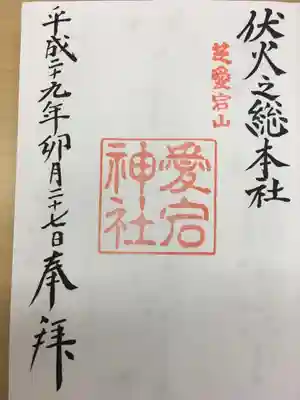 伏火之総本社
芝愛宕山
愛宕
神社
平成二十九年卯月二十七日奉拝